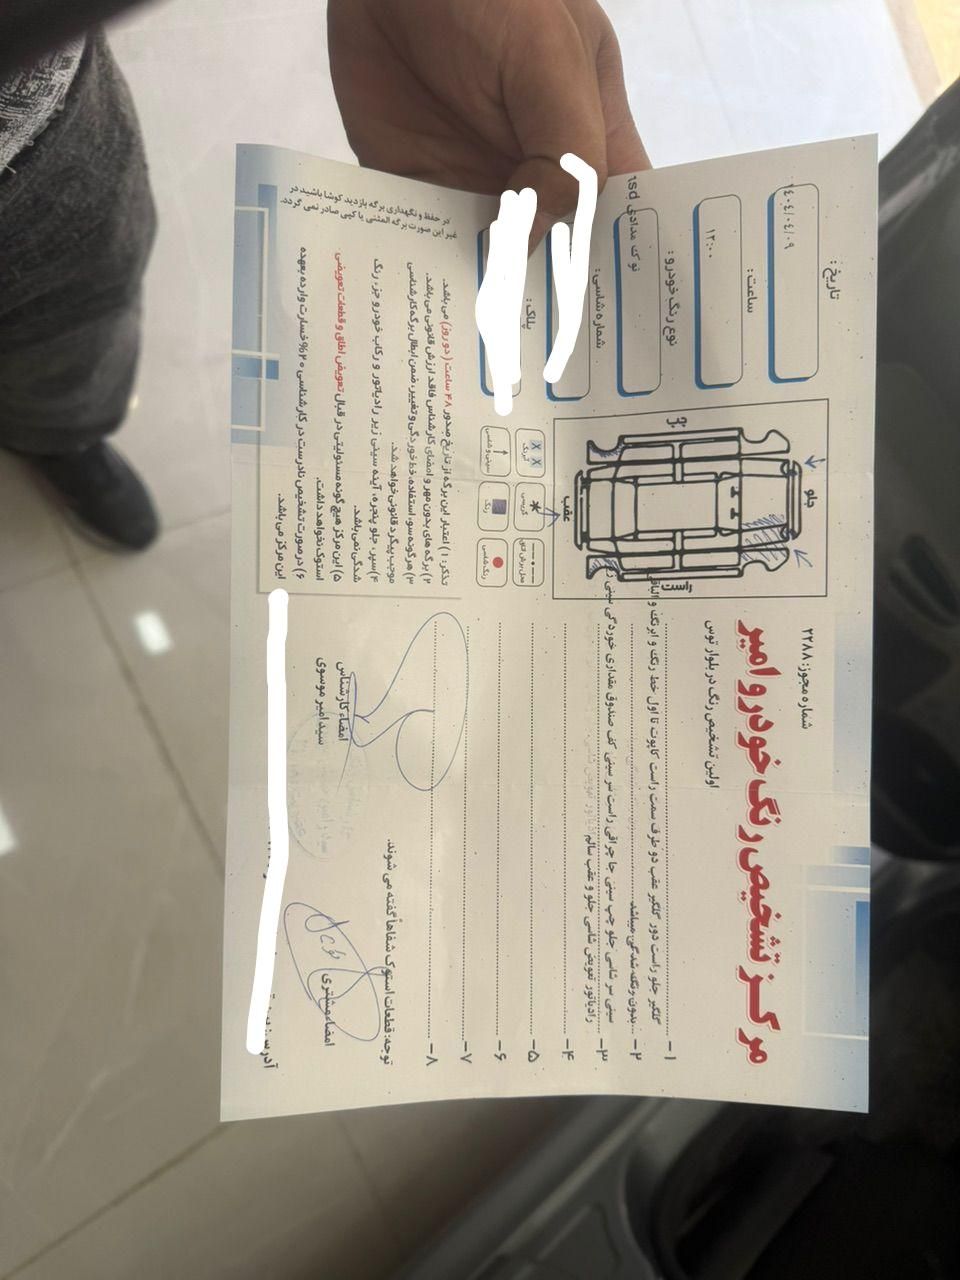 مرکز تشخیص رنگ خودرو امیر
شماره مجوز: ۲۲۸۸
اولین تشخیص رنگ در بلوار توس
تاریخ:
۱۴۰۴/۰۴/۰۹
ساعت:
۱۲:۰۰
نوع رنگ خودرو:
نوک مدادی tsd
شماره شاسی:
پلاک:
جلو
چپ
راست
عقب
آبرنگ
گریسی
محل برش اتاق
سینی و شاسی
رنگ
رنگ شاسی
۱- گلگیر جلو راست دور گلگیر عقب دو طرف سمت راست کاپوت تا اول خط رنگ و ابرنگ و الباقی
۲- بدون رنگ شدگی میباشد
۳- سینی سر شاسی جلو چپ سینی جا چراقی راست سر سینی کف صندوق مقداری خوردگی سینی زیر
۴- رادیاتور تعویض شاسی جلو و عقب سالم
۵-
۶-
۷-
۸-
توجه: قطعات استوک شفاهاً گفته می شوند.
امضاء کارشناس
سید امیر موسوی
امضاء مشتری
تذکر: ۱) اعتبار این برگه از تاریخ صدور ۴۸ ساعت (دو روز) می باشد.
۲) برگه های بدون مهر و امضای کارشناس فاقد ارزش قانونی می باشد.
۳) هرگونه سو، استفاده، خط خوردگی و تغییر، ضمن ابطال برگه کارشناسی
موجب پیگرد قانونی خواهد شد.
۴) سپر، جلو پنجره، آینه سینی زیر رادیاتور و رکاب خودرو جزء رنگ
شدگی نمی باشد.
۵) این مرکز هیچ گونه مسئولیتی در قبال تعویض اطاق و قطعات تعویضی
استوک نخواهد داشت.
۶) در صورت تشخیص نادرست در کارشناسی ۲۰% خسارت وارده بعهده
این مرکز می باشد.
در حفظ و نگهداری برگه بازدید کوشا باشید در
غیر این صورت برگه المثنی یا کپی صادر نمی گردد.